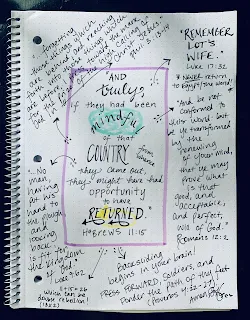 "...forgetting
those things which
are behind and reaching
forth unto those things which
are before, I press toward the mark
for the prize of the high calling of
God in Christ Jesus."
Phil. 3:13-14
"REMEMBER
LOT'S
WIFE."
Luke 17:32
NEVER return
to Egypt/the world!
"And be not
conformed to
this world: but
be ye transformed by
the renewing
of your mind,
that ye may
prove what
is that
good, and
acceptable,
and perfect,
will of God."
Romans 12:2
"AND
truly,
if they had been
mindful
of that
COUNTRY
from whence
they came out,
they might have had
opportunity
to have
RETURNED."
HEBREWS 11:15
"...No
man,
having put his
hand to
the plough,
and
looking
back,
is fit for
the kingdom
of God."
Luke 9:62
Backsliding
begins in your brain!
PRESS FORWARD, soldiers, and
Ponder the path of thy feet
(Proverbs 4:22-27)
which can be
double rebellion!